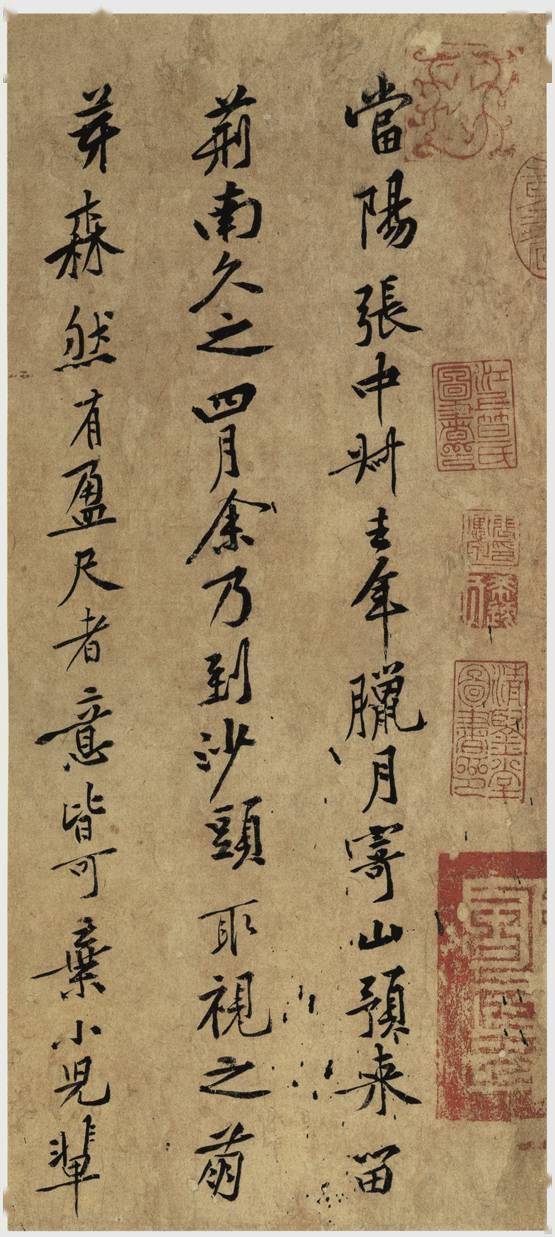 當陽張中叔去年臘月寄山預来留
荊南久之四月余乃到沙頭取視之萌
芽森然有盈尺者意皆可棄小兒輩
清賢堂圖書印